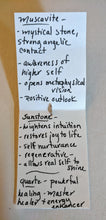 muscovite -
- mystical stone,
strong angelic
contact
- awareness of
higher self
- opens metaphysical
vision
- positive outlook
Sunstone -
- heightens intuition
- restores joy to life
- self nurturance
- regenerative
- allows real self to
shine
Quartz - powerful
healing - master
healer & energy
enhancer